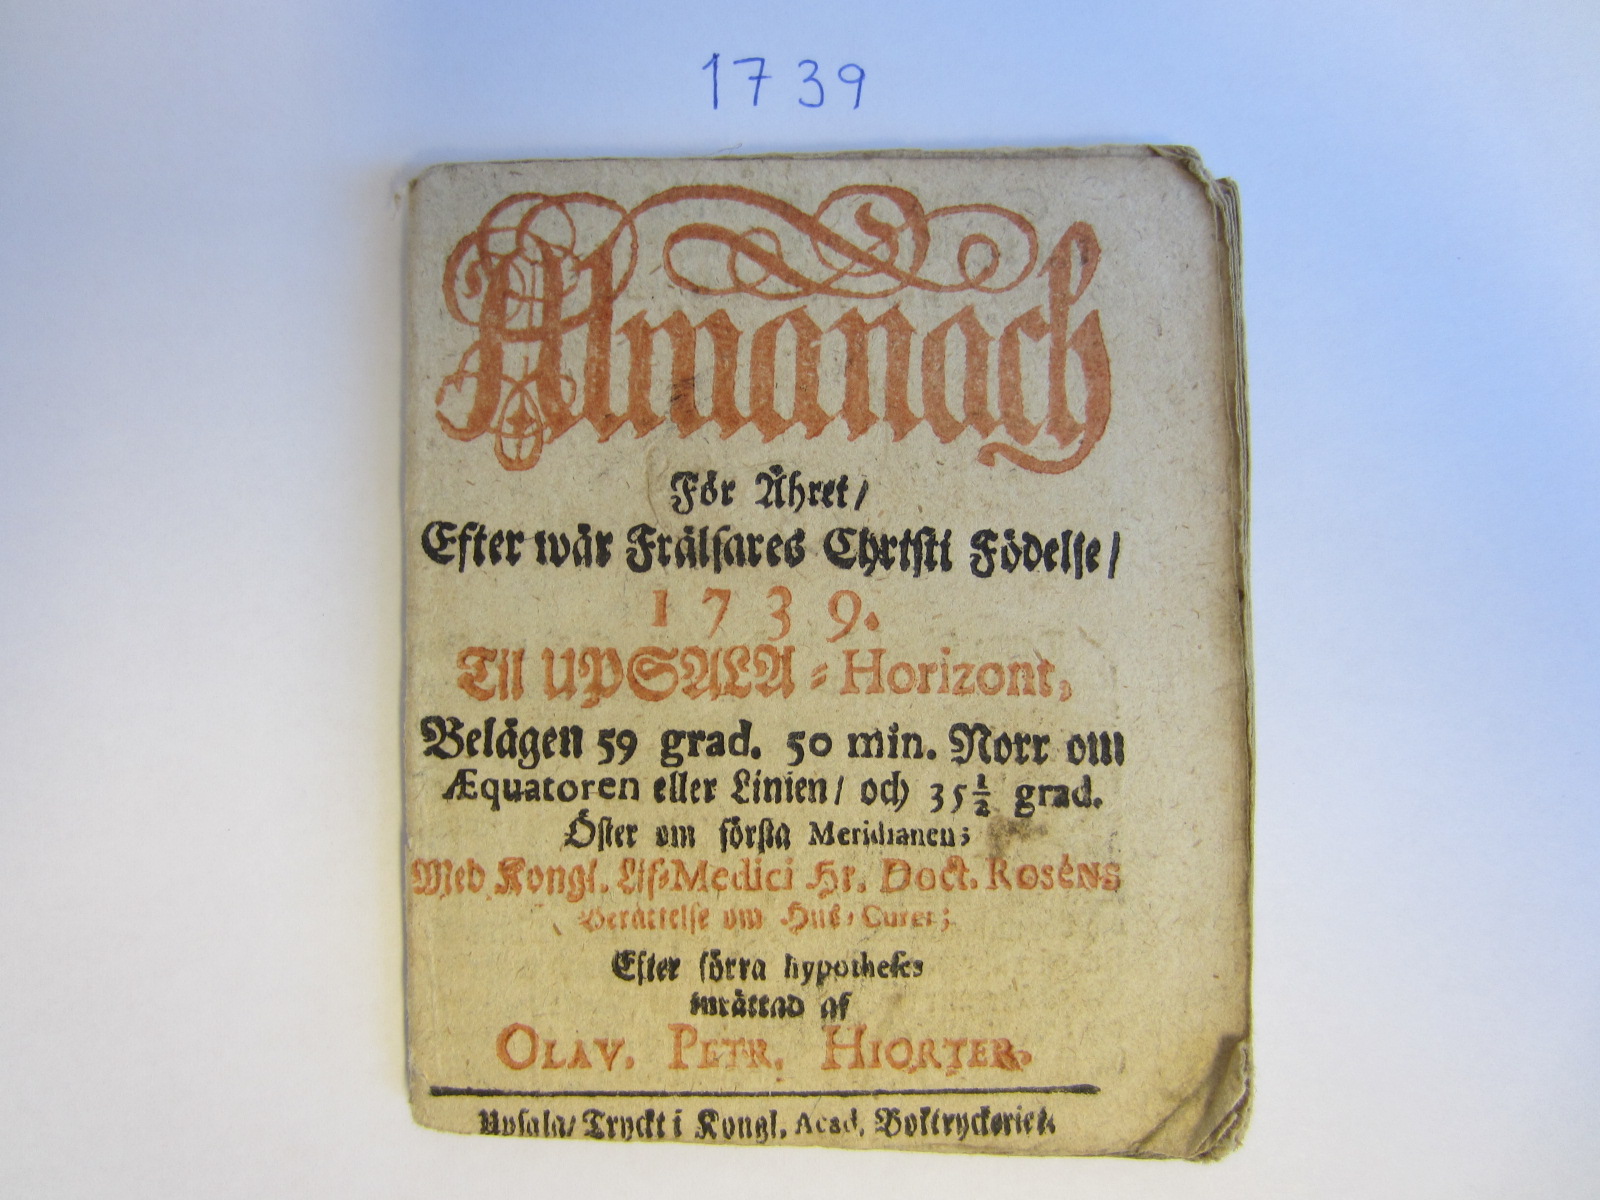 1739
Almanach
För Åhret/
Efter wår Frälsares Christi Födelse/
1739.
Til UPSALA-Horizont,
Belägen 59 grad. 50 min. Norr om
Æquatoren eller Linien/ och 35 1/2 grad.
Öster om första Meridianen;
Med Kongl. Lif-Medici Hr. Doct. Roséns
Berättelse om Hus-Curer;
Efter förra hypotheses
inrättad af
OLAV. PETR. HIORTER.
Upsala/ Tryckt i Kongl. Acad. Boktryckeriet.